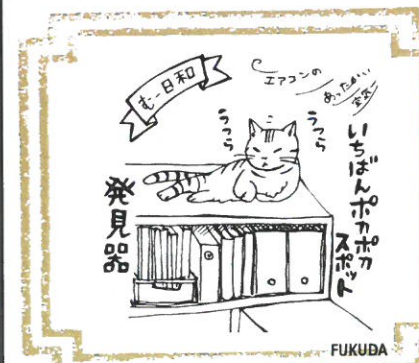 む一日和
エアコンの
あったかい
空気
うつら
うつら
いちばんポカポカ
スポット
発見器
FUKUDA